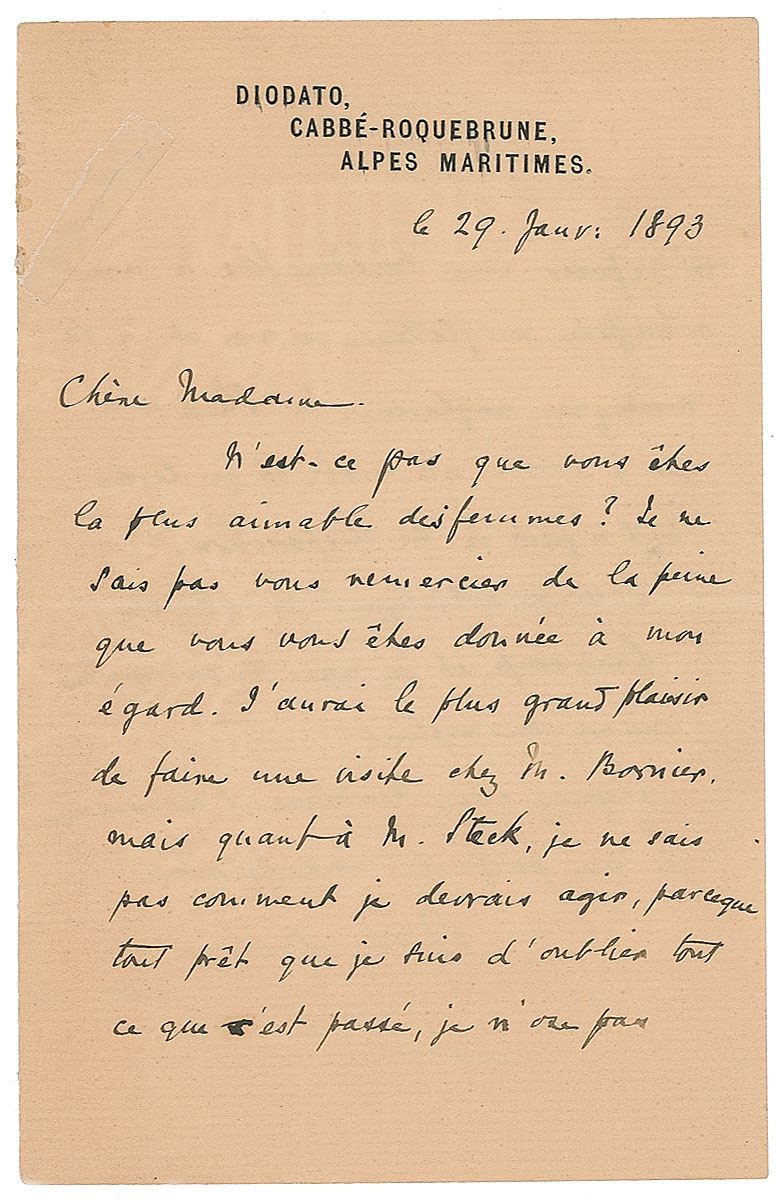 DIODATO,
CABBÉ-ROQUEBRUNE,
ALPES MARITIMES.
le 29. Janv: 1893
Chère Madame.
N'est-ce pas que vous êtes
la plus aimable des femmes? Je ne
sais pas vous remercier de la peine
que vous vous êtes donnée à mon
égard. J'aurai le plus grand plaisir
de faire une visite chez M. Bornier,
mais quant à M. Steck, je ne sais
pas comment je devrais agir, parceque
tout prêt que je suis d'oublier tout
ce que s'est passé, je n'ose pas